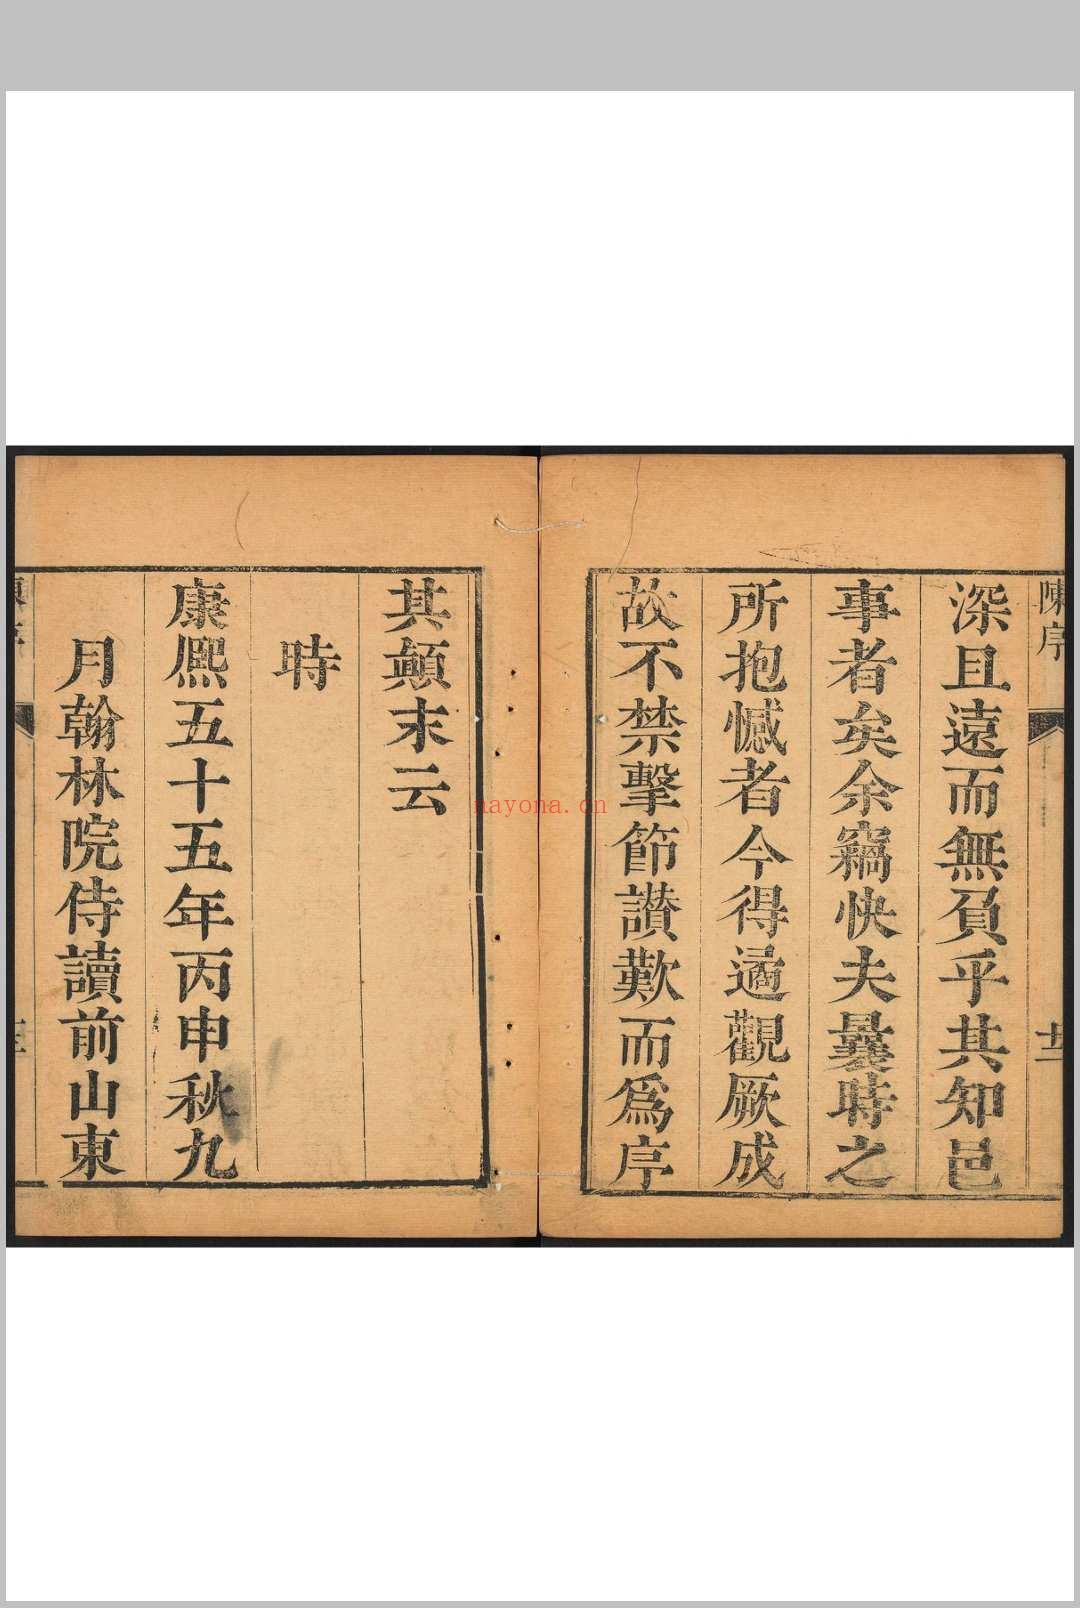 陳序
深且遠而無負乎其知邑
事者矣余竊快夫曩時之
所抱憾者今得遹觀厥成
故不禁擊節讃歎而爲序
其顛末云
時
康熙五十五年丙申秋九
月翰林院侍讀前山東
nayona.cn